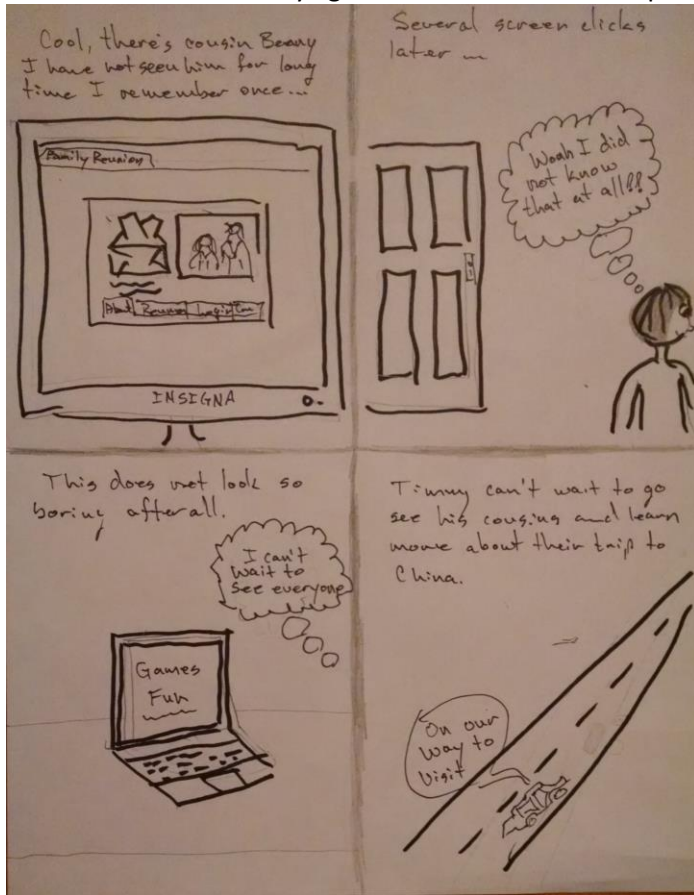 Cool, there's cousin Beany
I have not seen him for long
time I remember once...
Family Reunion
About Reunion Login
INSIGNA
Several screen clicks
later ...
Woah I did
not know
that at all!!
This does not look so
boring afterall.
I can't
wait to
see everyone
Games
Fun
Timmy can't wait to go
see his cousins and learn
more about their trip to
China.
On our
way to
visit